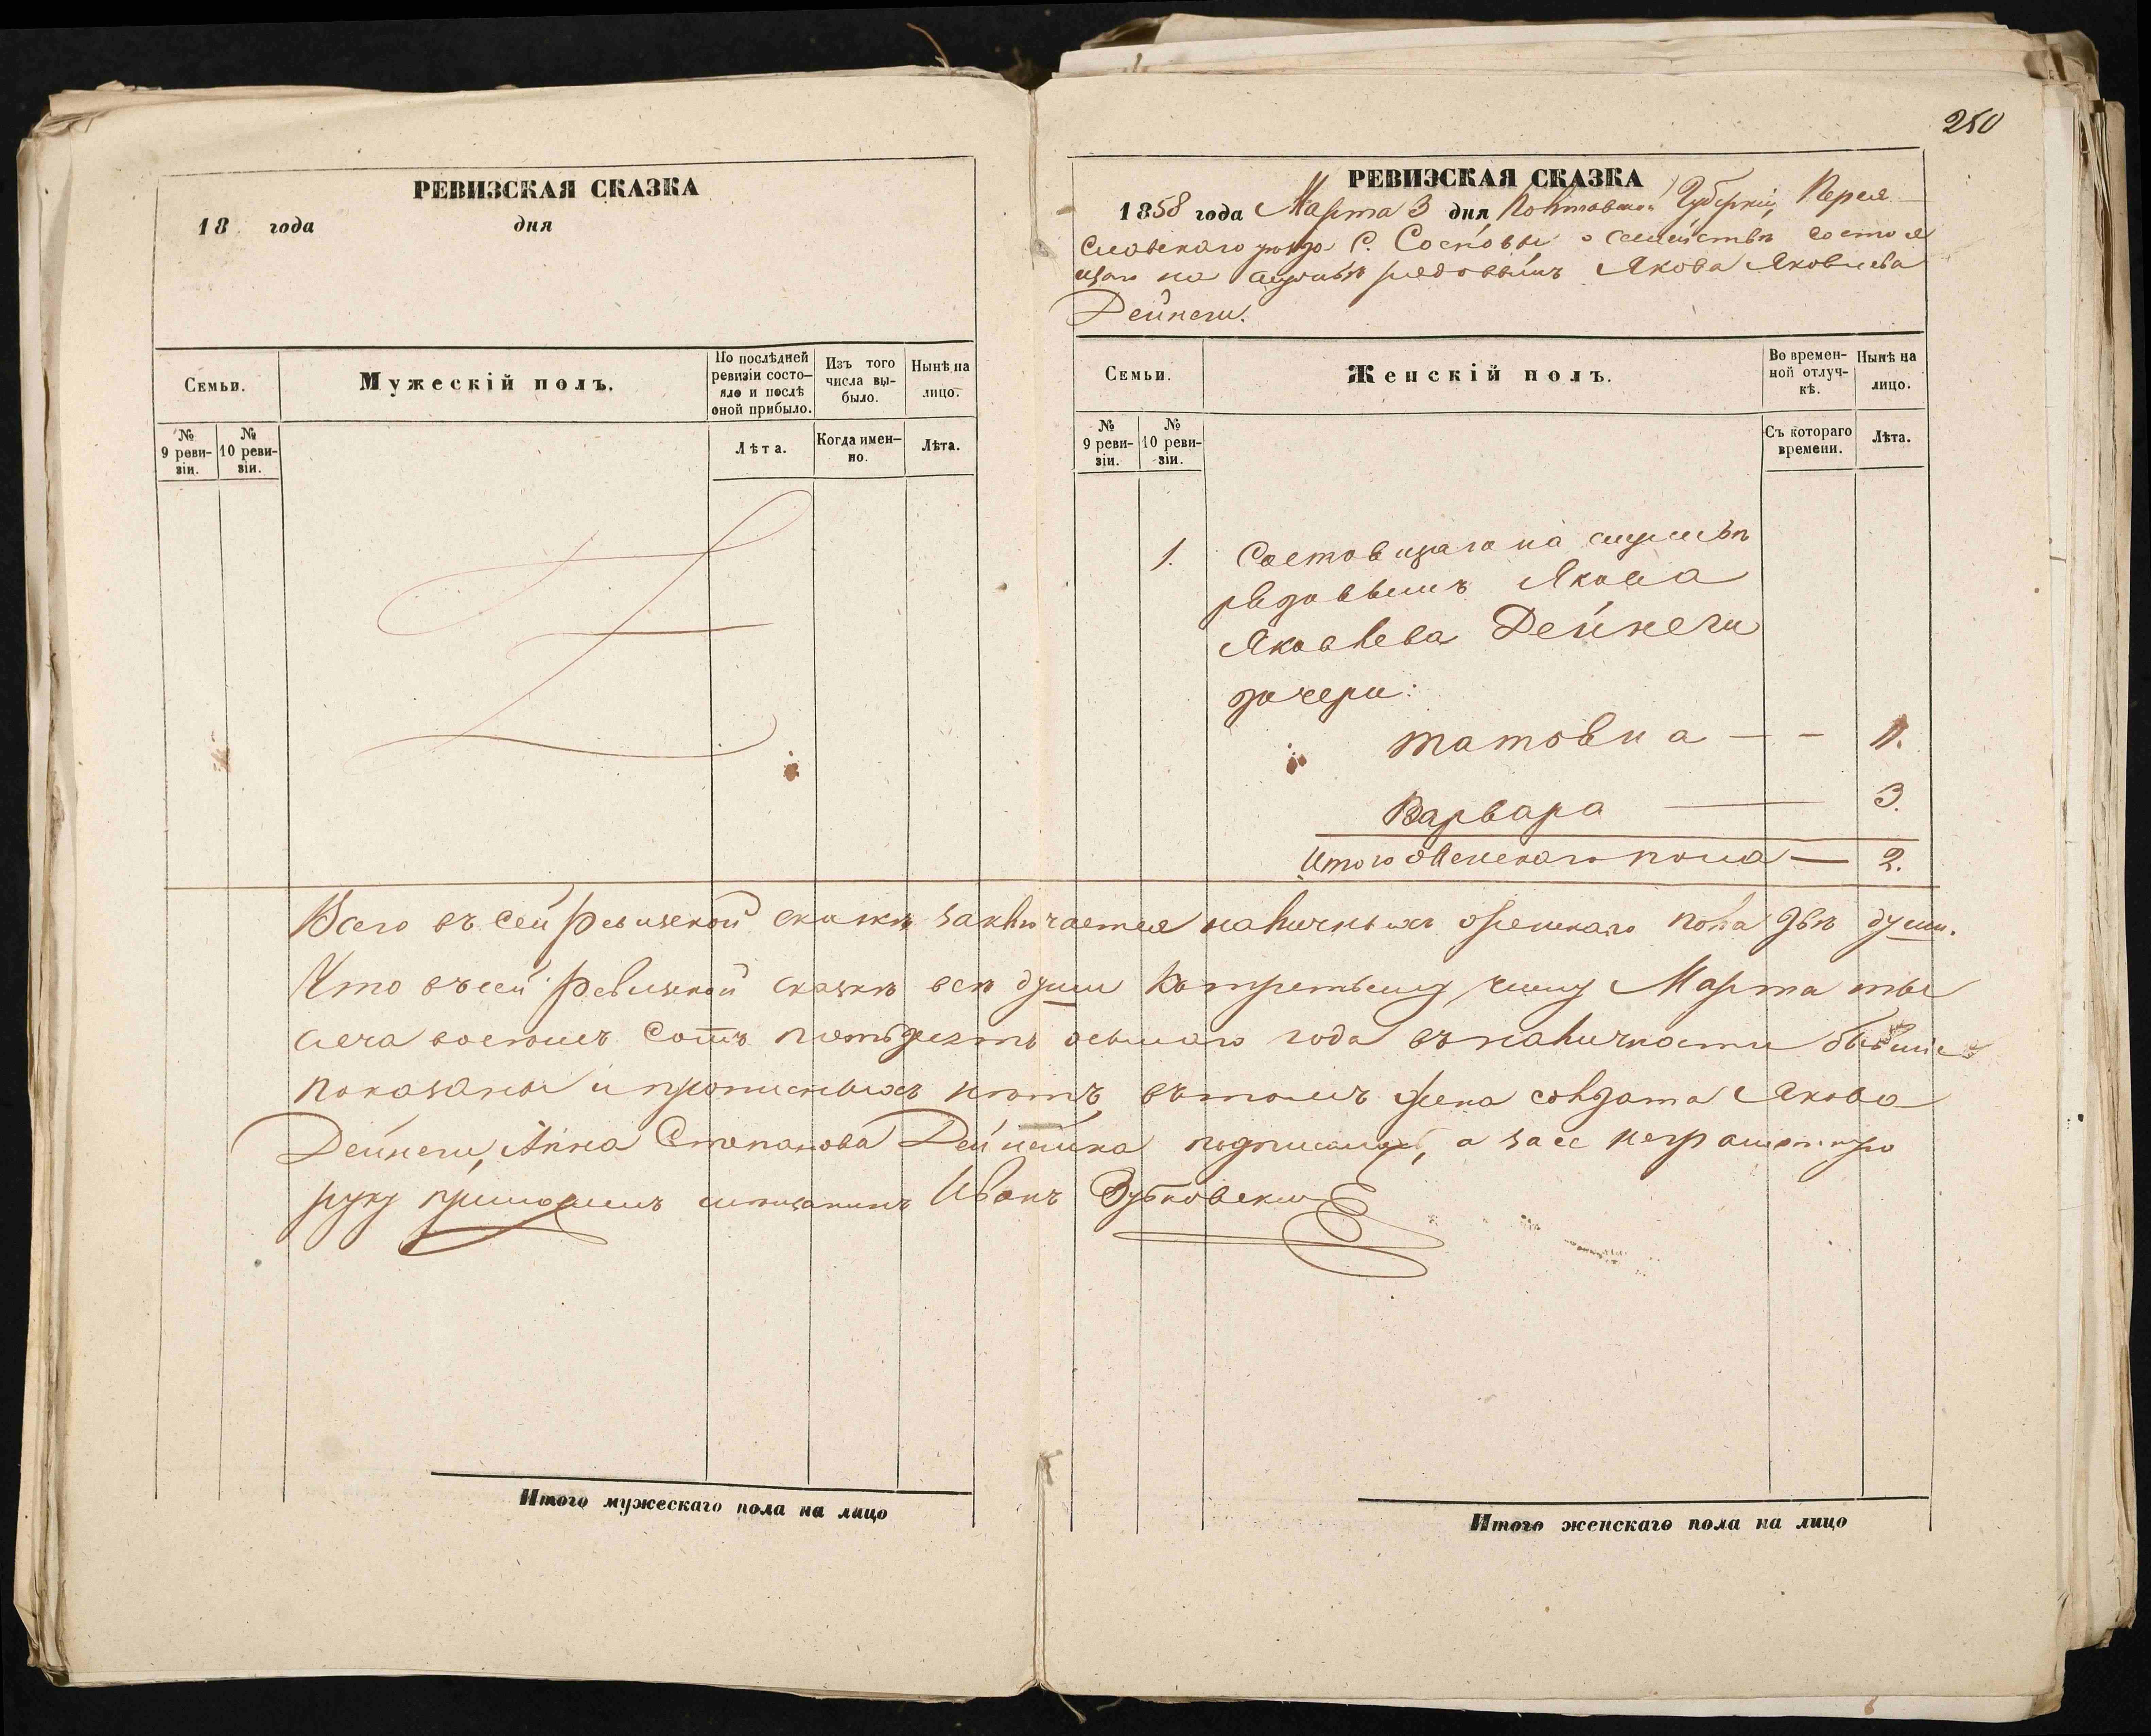 250
РЕВИЗСКАЯ СКАЗКА
18 года дня
Семьи.
Мужескій полъ.
По послѣдней ревизіи состо-яло и послѣ оной прибыло.
Изъ того числа вы-было.
Нынѣ на лицо.
№ 9 реви-зіи.
№ 10 реви-зіи.
Лѣта.
Когда имен-но.
Лѣта.
Итого мужескаго пола на лицо
РЕВИЗСКАЯ СКАЗКА
1858 года Марта 3 дня Полтавской Губерніи, Перея
Славскаго уѣзда С. Сосновы о семействѣ состоя
щаго на службѣ рядовымъ Якова Яковлева
Дейнеги.
Семьи.
Женскій полъ.
Во времен-ной отлуч-кѣ.
Нынѣ на лицо.
№ 9 реви-зіи.
№ 10 реви-зіи.
Съ котораго времени.
Лѣта.
1. Состоящаго на службѣ
рядовымъ Якова
Яковлева Дейнеги
дочери:
Матовна — — 11.
Варвара — 3.
Итого женскаго пола — 2.
Всего въ сей Ревизской сказкѣ заключается наличныхъ женскаго пола двѣ души.
Что въ сей Ревизской сказкѣ всѣ души къ третьему числу Марта ты
сяча восемь сотъ пятьдесятъ осьмаго года въ наличности бывшіе
показаны и прописныхъ нѣтъ въ томъ жена солдата Якова
Дейнеги, Анна Степанова Дейнеги́на а за ее неграмотную
руку приложилъ мѣщанинъ Иванъ Зубковскій
Итого женскаго пола на лицо